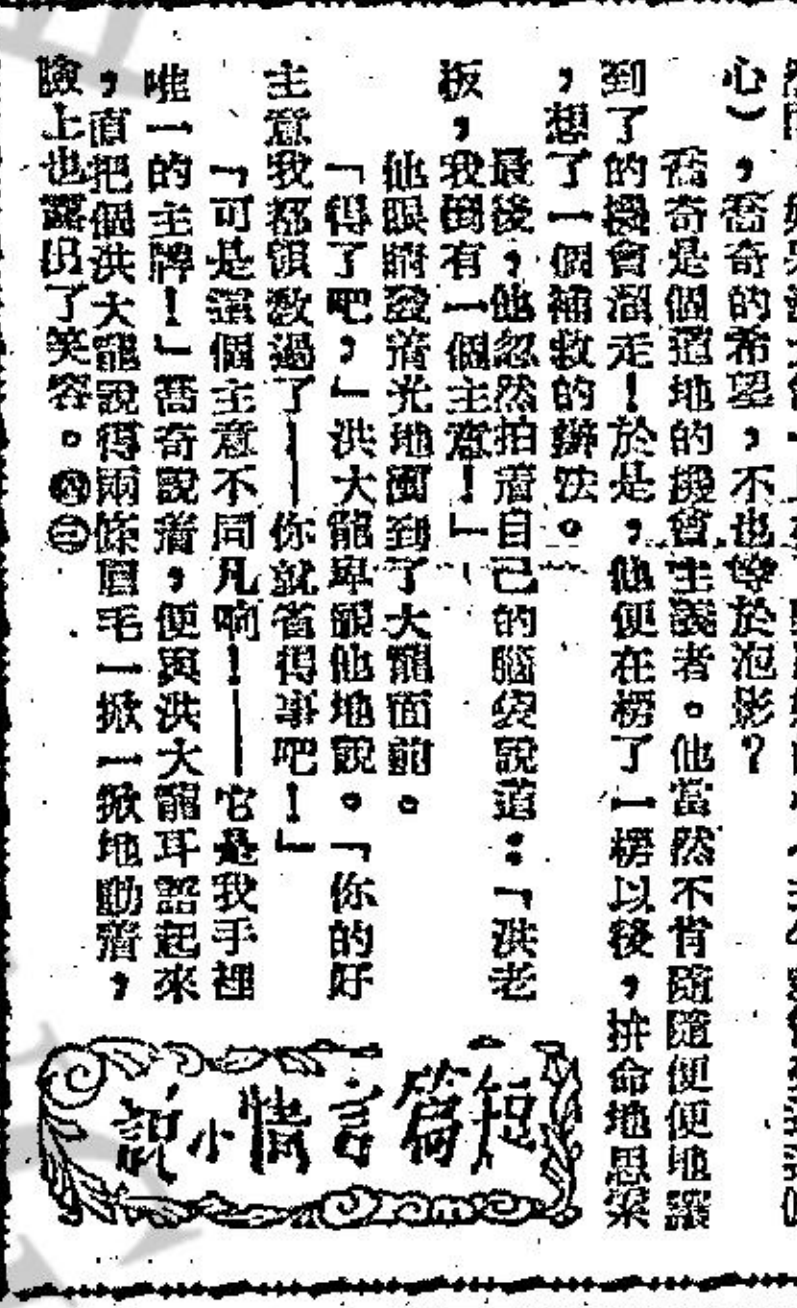 心），喬奇的希望，不也等於泡影？
喬奇是個道地的機會主義者。他當然不肯隨隨便便地讓
到了的機會溜走！於是，他便在楞了一楞以後，拚命地思索
，想了一個補救的辦法。
最後，他忽然拍着自己的腦袋說道：「洪老
板，我倒有一個主意！」
他眼睛發着光地
到了大龍面前。
「得了吧，」洪大龍卑視他地說。「你的好
主意我都領教過了——你就省得事吧！」
「可是這個主意不同凡响！——它是我手裡
唯一的主牌！」喬奇說着，便與洪大龍耳語起來
，直把個洪大龍說得兩條眉毛一掀一掀地動着，
臉上也露出了笑容。㊃㊂
短篇言情小說